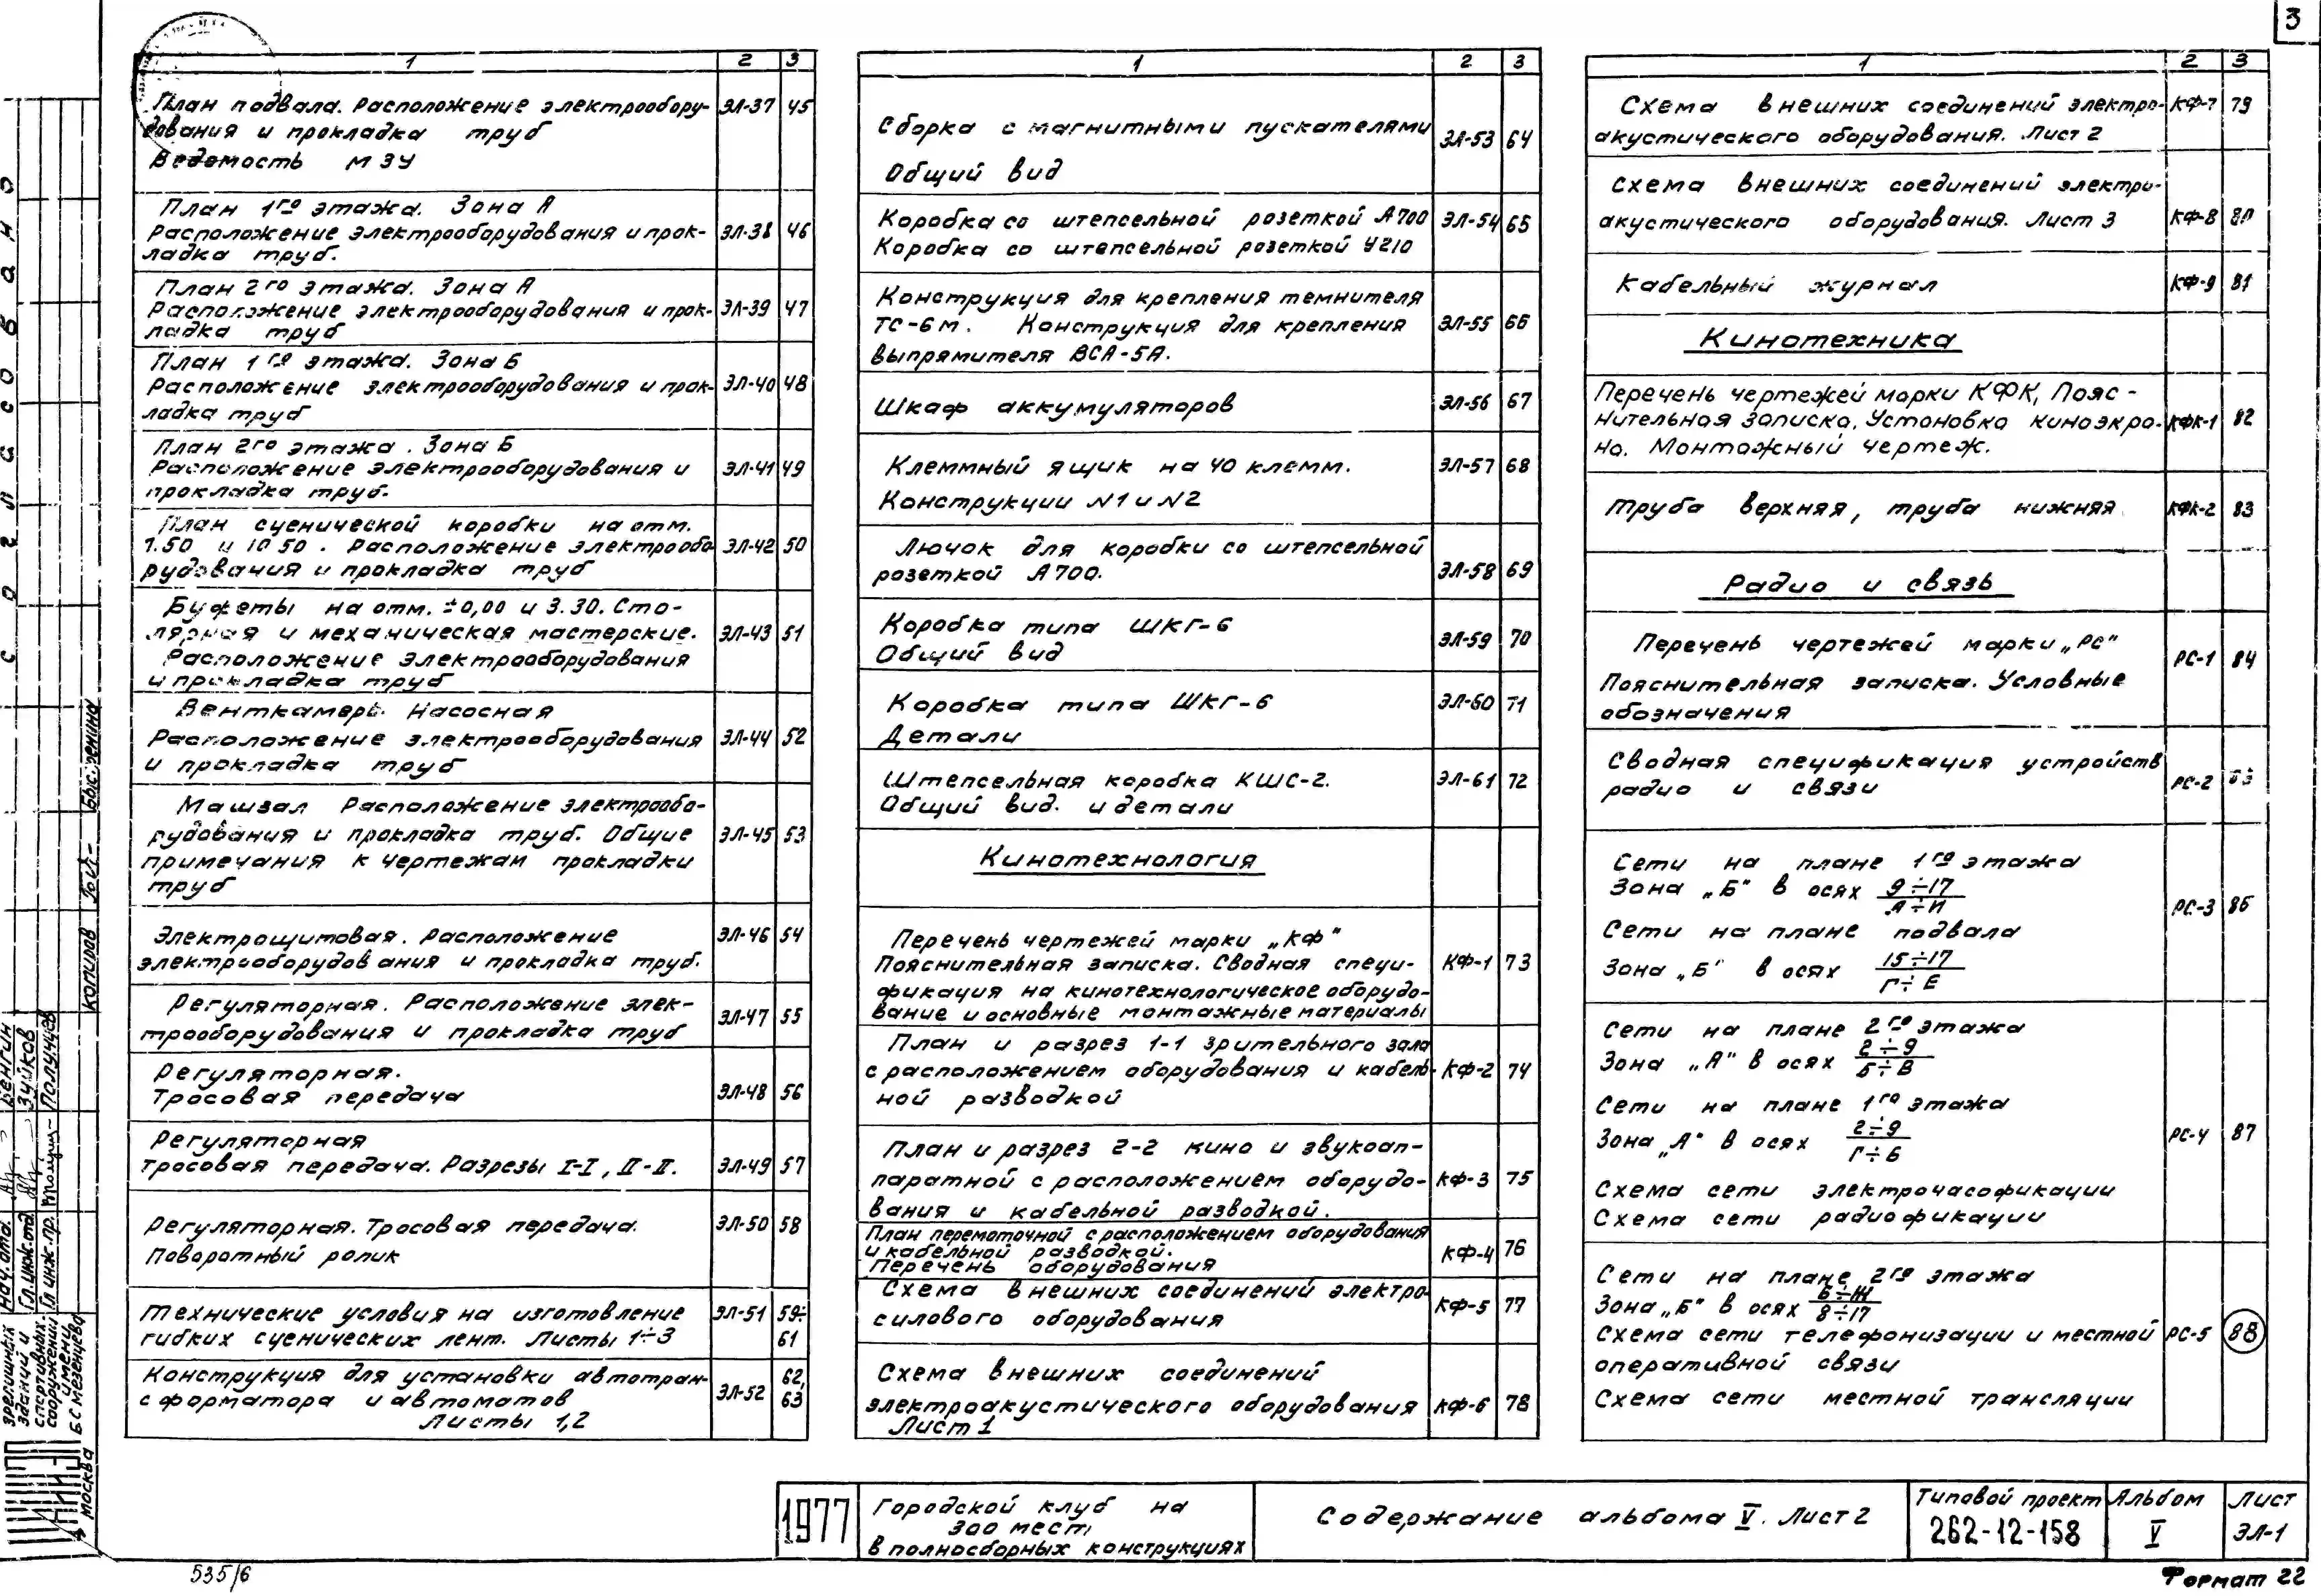 3
1 2 3
План подвала. Расположение электрообору- ЭЛ-37 45
дования и прокладка труб
Ведомость МЗУ
План 1го этажа. Зона А
Расположение электрооборудования и прок- ЭЛ-38 46
ладка труб.
План 2го этажа. Зона А
Расположение электрооборудования и прок- ЭЛ-39 47
ладка труб
План 1го этажа. Зона Б
Расположение электрооборудования и прок- ЭЛ-40 48
ладка труб
План 2го этажа. Зона Б
Расположение электрооборудования и ЭЛ-41 49
прокладка труб.
План сценической коробки на отм.
1.50 и 10 50. Расположение электрообо ЭЛ-42 50
рудования и прокладка труб
Буфеты на отм. ±0,00 и 3.30. Сто-
лярная и механическая мастерские. ЭЛ-43 51
Расположение электрооборудования
и прокладка труб
Венткамеры. Насосная
Расположение электрооборудования ЭЛ-44 52
и прокладка труб
Машзал Расположение электрообо-
рудования и прокладка труб. Общие ЭЛ-45 53
примечания к чертежам прокладки
труб
Электрощитовая. Расположение ЭЛ-46 54
электрооборудования и прокладка труб.
Регуляторная. Расположение элек-
трооборудования и прокладка труб ЭЛ-47 55
Регуляторная.
Тросовая передача ЭЛ-48 56
Регуляторная
тросовая передача. Разрезы I-I, II-II. ЭЛ-49 57
Регуляторная. Тросовая передача. ЭЛ-50 58
Поворотный ролик
Технические условия на изготовление ЭЛ-51 59÷
гибких сценических лент. Листы 1÷3 61
Конструкция для установки автотран- 62,
сформатора и автоматов ЭЛ-52 63
Листы 1,2
1 2 3
Сборка с магнитными пускателями ЭЛ-53 64
Общий вид
Коробка со штепсельной розеткой А700 ЭЛ-54 65
Коробка со штепсельной розеткой У210
Конструкция для крепления темнителя
ТС-6м. Конструкция для крепления ЭЛ-55 66
выпрямителя ВСА-5А.
Шкаф аккумуляторов ЭЛ-56 67
Клеммный ящик на 40 клемм. ЭЛ-57 68
Конструкции N1 и N2
Лючок для коробки со штепсельной
розеткой А700. ЭЛ-58 69
Коробка типа ШКГ-6 ЭЛ-59 70
Общий вид
Коробка типа ШКГ-6 ЭЛ-60 71
Детали
Штепсельная коробка КШС-2. ЭЛ-61 72
Общий вид. и детали
Кинотехнология
Перечень чертежей марки „КФ"
Пояснительная записка. Сводная специ- КФ-1 73
фикация на кинотехнологическое оборудо-
вание и основные монтажные материалы
План и разрез 1-1 зрительного зала
с расположением оборудования и кабель- КФ-2 74
ной разводкой
План и разрез 2-2 кино и звукоап-
паратной с расположением оборудо- КФ-3 75
вания и кабельной разводкой.
План перемоточной с расположением оборудования
и кабельной разводкой. КФ-4 76
Перечень оборудования
Схема внешних соединений электро- КФ-5 77
силового оборудования
Схема внешних соединений
электроакустического оборудования КФ-6 78
Лист 1
1 2 3
Схема внешних соединений электро- КФ-7 79
акустического оборудования. Лист 2
Схема внешних соединений электро-
акустического оборудования. Лист 3 КФ-8 80
Кабельный журнал КФ-9 81
Кинотехника
Перечень чертежей марки КФК, Пояс-
нительная записка. Установка киноэкра- КФК-1 82
на. Монтажный чертеж.
Труба верхняя, труба нижняя КФК-2 83
Радио и связь
Перечень чертежей марки „РС" РС-1 84
Пояснительная записка. Условные
обозначения
Сводная спецификация устройств
радио и связи РС-2
Сети на плане 1го этажа
Зона „Б" в осях 9÷17
А÷И РС-3 86
Сети на плане подвала
Зона „Б" в осях 15÷17
Г÷Е
Сети на плане 2го этажа
Зона „А" в осях 2÷9
Б÷В
Сети на плане 1го этажа
Зона „А" в осях 2÷9 РС-4 87
Г÷Б
Схема сети электрочасофикации
Схема сети радиофикации
Сети на плане 2го этажа
Зона „Б" в осях Б÷Ж
8÷17
Схема сети телефонизации и местной РС-5 88
оперативной связи
Схема сети местной трансляции
1977
Городской клуб на
300 мест
в полносборных конструкциях
Содержание альбома V. Лист 2
Типовой проект
262-12-158
Альбом
V
Лист
ЭЛ-1
535/6
Формат 22
Согласовано
Копировал
Нач. отд.
Гл. инж. отд.
Гл. инж. пр.
Зуйков
зрелищных
зданий и
спортивных
сооружений
имени
Б С Мезенцева
Москва